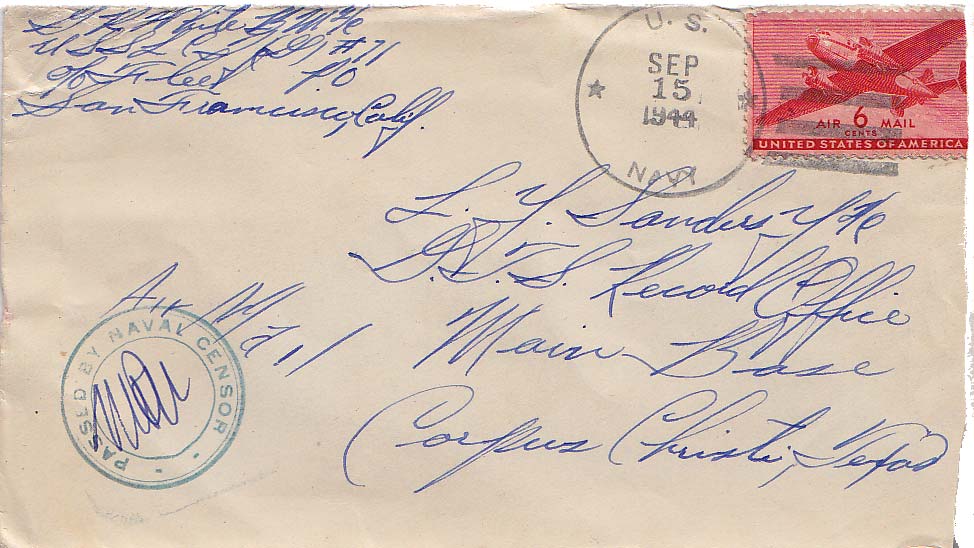 White BM 2/c
U.S.S. L (G) #71
c/o Fleet PO
San Francisco, Calif.
U. S.
SEP
15
1944
NAVY
AIR 6 MAIL
CENTS
UNITED STATES OF AMERICA
L. Y. Sanders Y 2/c
D.I.T.S. Record Office
Main Base
Corpus Christi, Texas
Air Mail
PASSED BY NAVAL CENSOR